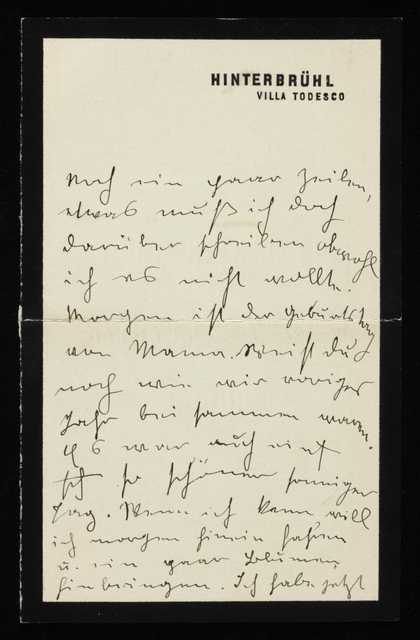 HINTERBRÜHL
VILLA TODESCO
Noch ein paar Zeilen,
etwas muß ich doch
darüber schreiben obwohl
ich es nicht wollte.
Morgen ist der Geburtstag
von Mama. Weißt du
noch wie wir voriges
Jahr beisammen waren.
Es war auch ein
so schöner sonniger
Tag. Wenn ich kann will
ich morgen hinein fahren
u. ein paar Blumen
hinbringen. Ich habe jetzt